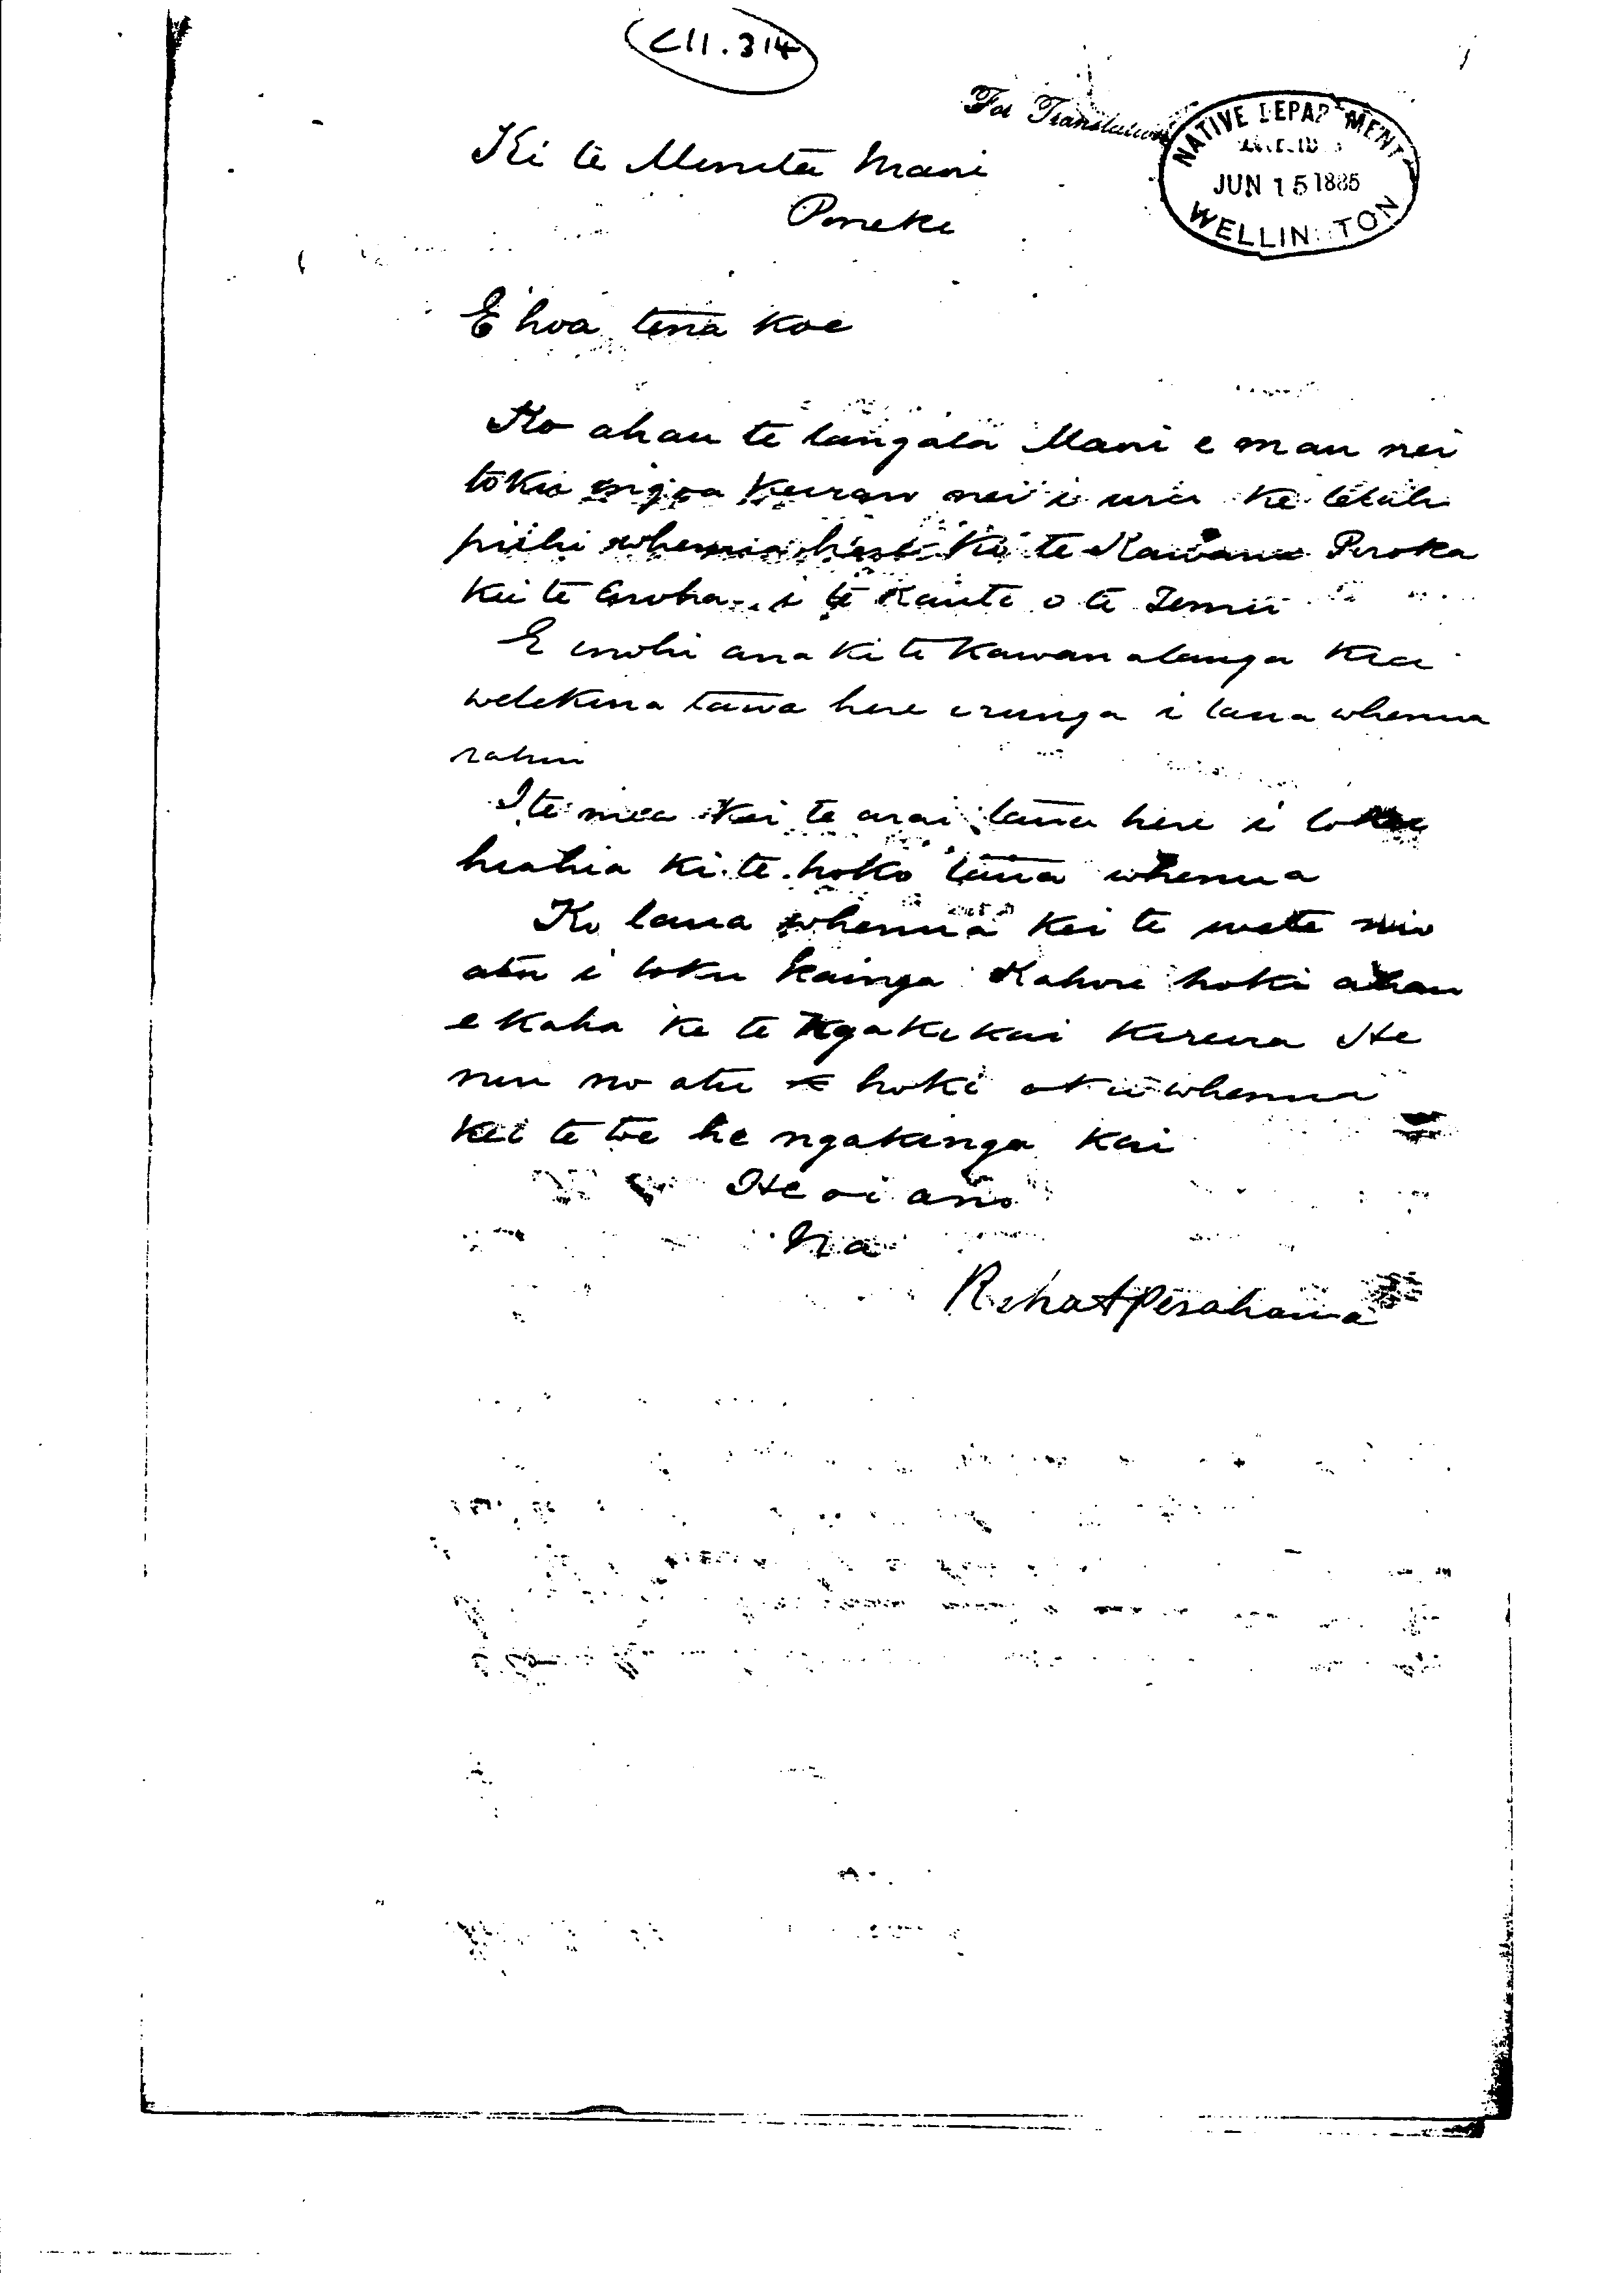 C11.314
For Translation
NATIVE DEPARTMENT
JUN 15 1885
WELLINGTON
Ki te Minita Maori
Poneke
E hoa tena koe
Ko ahau te tangata Maori e mau nei
toku ingoa ki raro nei i uru ki tetahi
piihi whenua ki te Kawana Poroka
kei te Aroha i te Kaute o te
E inohi ana ki te Kawanatanga kia
wetekina taua here i runga i taua whenua
rahui
I te mea kei te arai taua here i toku
hiahia ki te hoko taua whenua
Ko taua whenua kei te mate mio
atu i toku kainga Kahore hoki ahau
e kaha ki te Ngaki kai kireira He
nui no atu hoki oku whenua
kei te toe he ngakinga kai
He oi ano
Na
Reha Aperahama